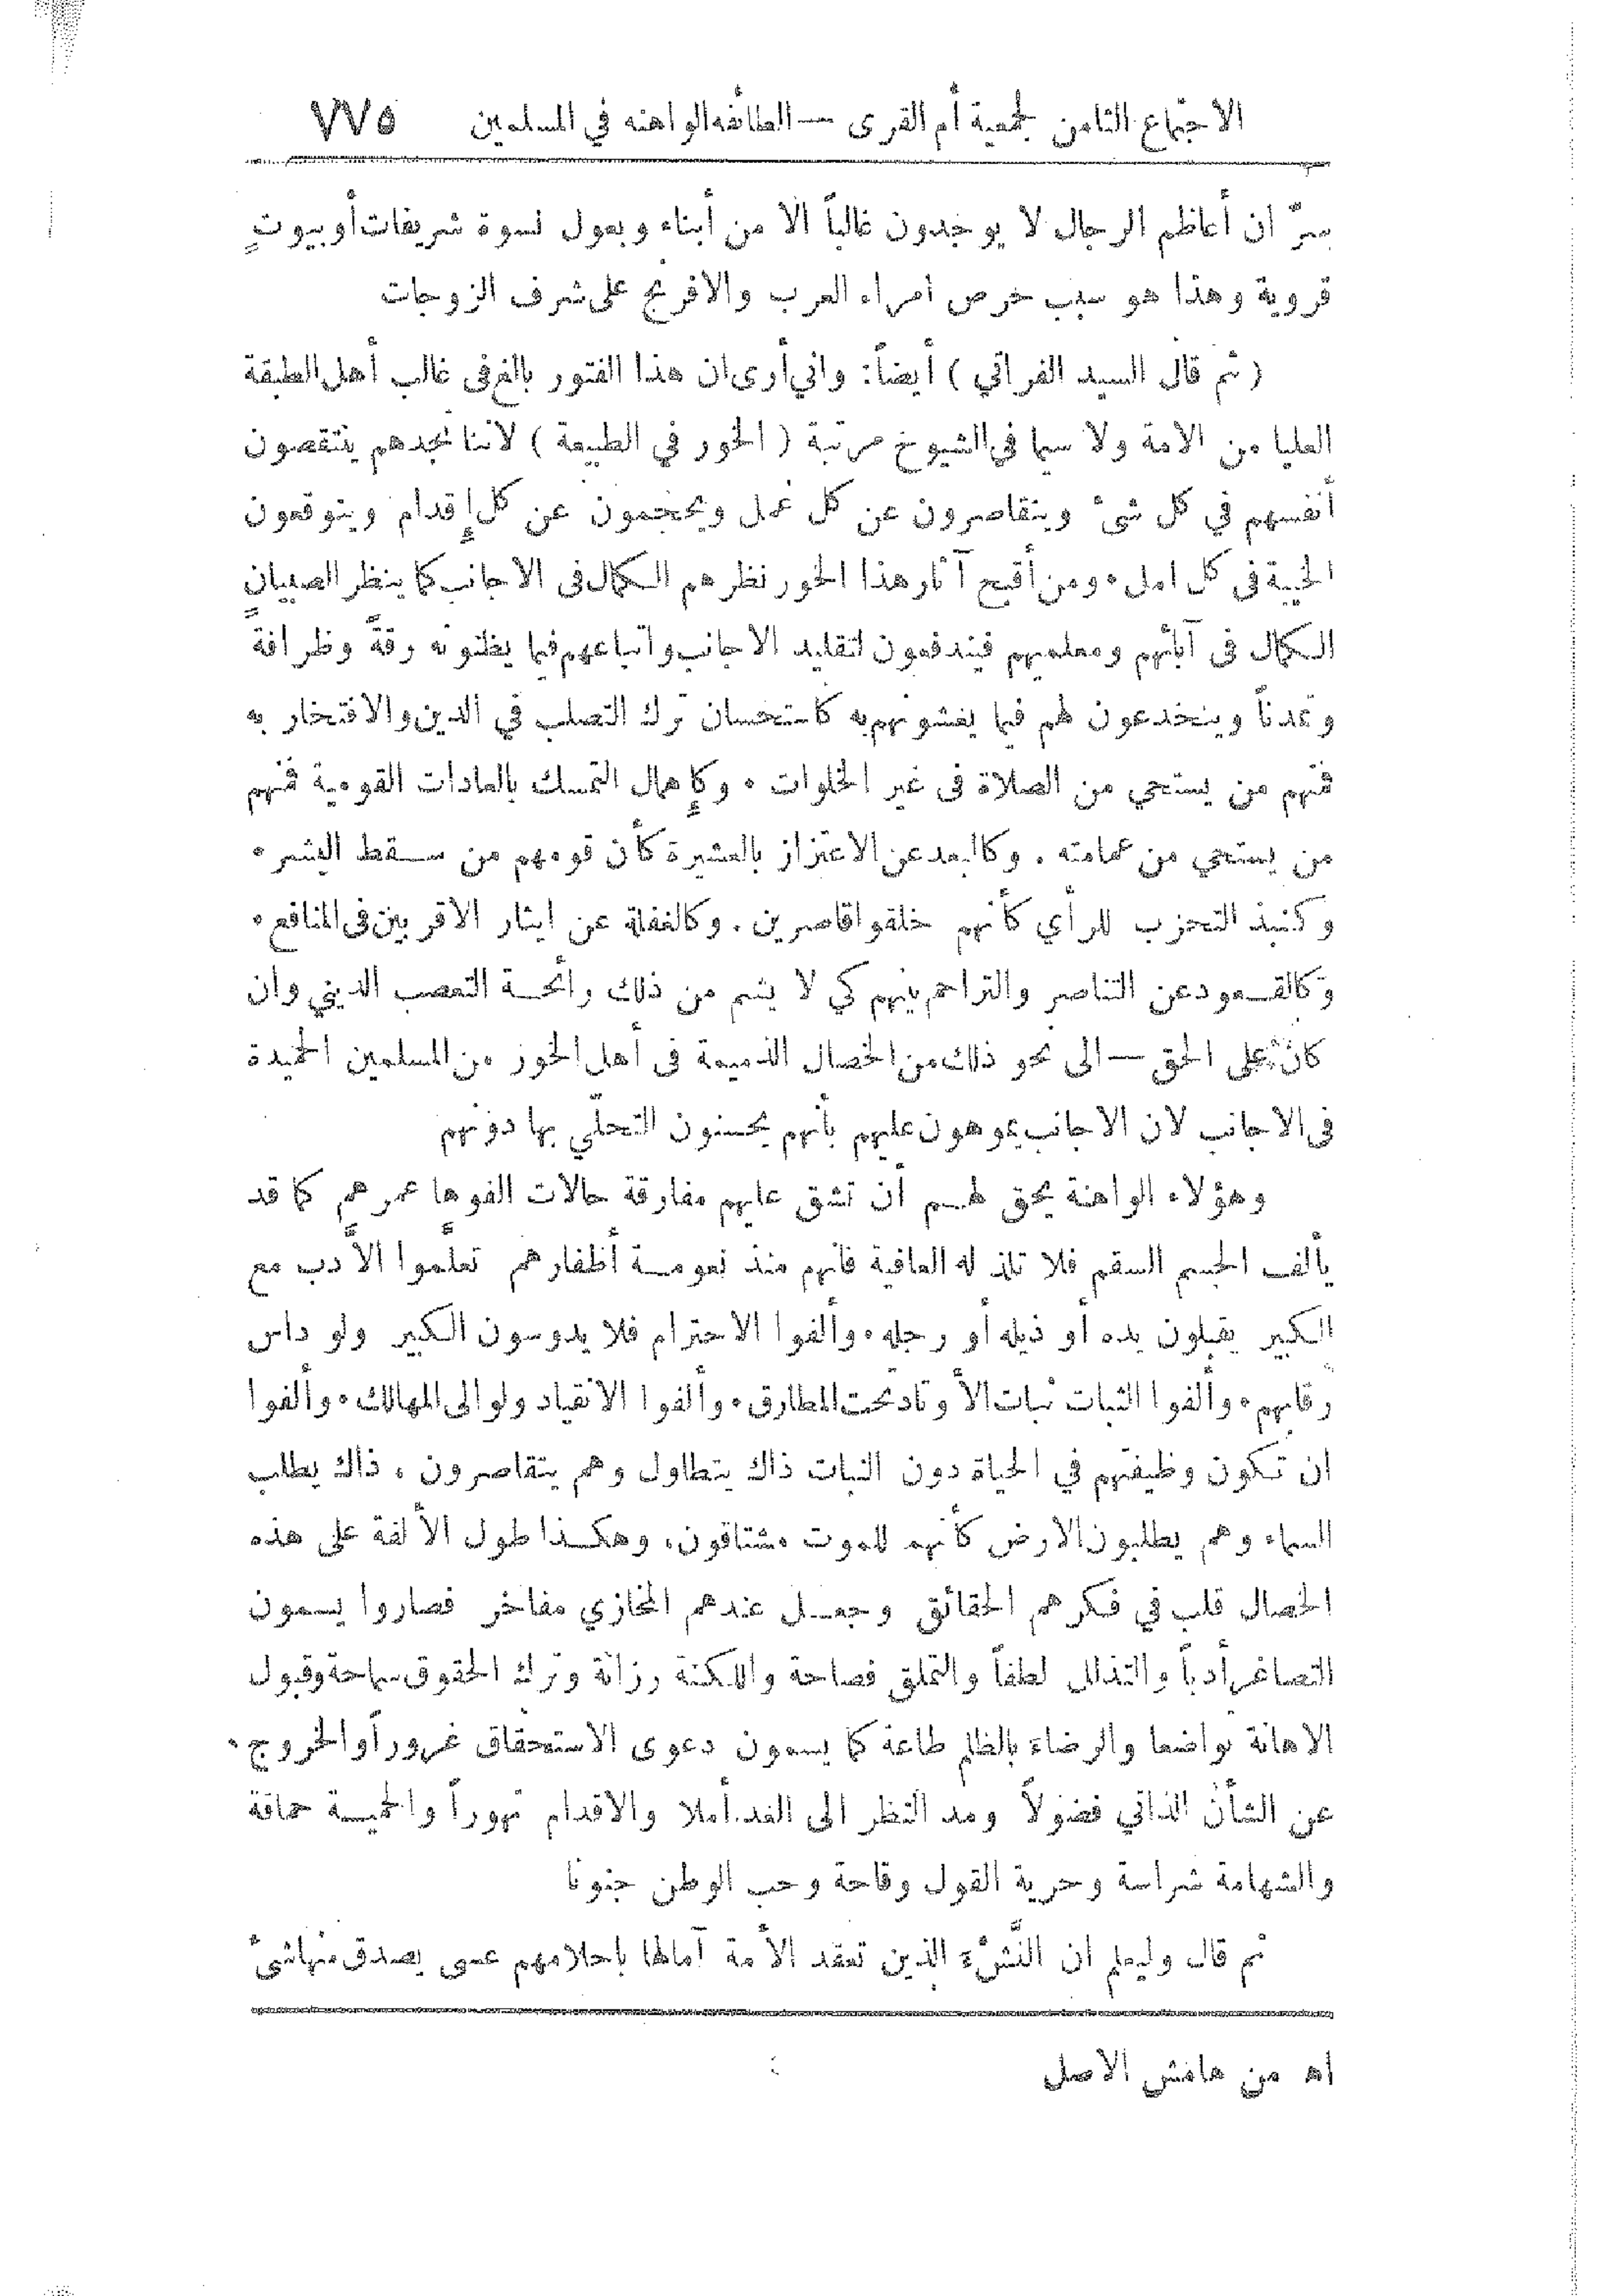 الاجتماع الثامن لجمعية أم القرى — الطائفه الواهنه في المسلمين ٧٧٥
سرّ ان أعاظم الرجال لا يوجدون غالباً الا من أبناء وبعول نسوة شريفات أو بيوتٍ
قروية وهذا هو سبب حرص امراء العرب والافرنج على شرف الزوجات
( ثم قال السيد الفراتي ) أيضاً: واني أرى ان هذا الفتور بالغ فى غالب أهل الطبقة
العليا من الامة ولا سيما في الشيوخ مرتبة ( الخور في الطبيعة ) لاننا نجدهم ينتقصون
أنفسهم في كل شئ ويتقاصرون عن كل عمل ويحجمون عن كل إقدام ويتوقعون
الخيبة فى كل امل ٠ ومن أقبح آثار هذا الخور نظرهم الكمال فى الاجانب كما ينظر الصبيان
الكمال فى آبائهم ومعلميهم فيندفعون لتقليد الاجانب واتباعهم فيما يظنونه رقةً وظرافةً
وتمدناً وينخدعون لهم فيما يغشونهم به كاستحسان ترك التصلب في الدين والافتخار به
فمنهم من يستحي من الصلاة فى غير الخلوات ٠ وكإهمال التمسك بالعادات القومية فمنهم
من يستحي من عمامته ٠ وكالبعد عن الاعتزاز بالعشيرة كأن قومهم من سقط البشر ٠
وكنبذ التحزب للرأي كأنهم خلقوا قاصرين ٠ وكالغفلة عن ايثار الاقربين فى المنافع ٠
وكالقعود عن التناصر والتراحم بينهم كي لا يشم من ذلك رائحة التعصب الديني وان
كان على الحق — الى نحو ذلك من الخصال الذميمة فى أهل الخور من المسلمين الحميدة
فى الاجانب لان الاجانب يموهون عليهم بأنهم يحسنون التحلّي بها دونهم
وهؤلاء الواهنة يحق لهم أن تشق عليهم مفارقة حالات الفوها عمرهم كما قد
يألف الجسم السقم فلا تلذ له العافية فانهم منذ نعومة أظفارهم تعلَّموا الأدب مع
الكبير يقبلون يده أو ذيله أو رجله ٠ وألفوا الاحترام فلا يدوسون الكبير ولو داس
رقابهم ٠ وألفوا الثبات ثبات الأوتاد تحت المطارق ٠ وألفوا الانقياد ولو الى المهالك ٠ وألفوا
ان تكون وظيفتهم في الحياة دون النبات ذاك يتطاول وهم يتقاصرون ، ذاك يطلب
السماء وهم يطلبون الارض كأنهم للموت مشتاقون، وهكذا طول الألفة على هذه
الخصال قلب في فكرهم الحقائق وجعل عندهم المخازي مفاخر فصاروا يسمون
التصاغر أدباً والتذلل لطفاً والتملق فصاحة واللكنة رزانة وترك الحقوق سماحة وقبول
الاهانة تواضعا والرضاء بالظلم طاعة كما يسمون دعوى الاستحقاق غروراً والخروج
عن الشأن الذاتي فضولاً ومد النظر الى الغد أملا والاقدام تهوراً والحمية حماقة
والشهامة شراسة وحرية القول وقاحة وحب الوطن جنونا
ثم قال وليعلم ان النَّشْء الذين تعقد الأمة آمالها باحلامهم عسى يصدق منها شئ
اه من هامش الاصل